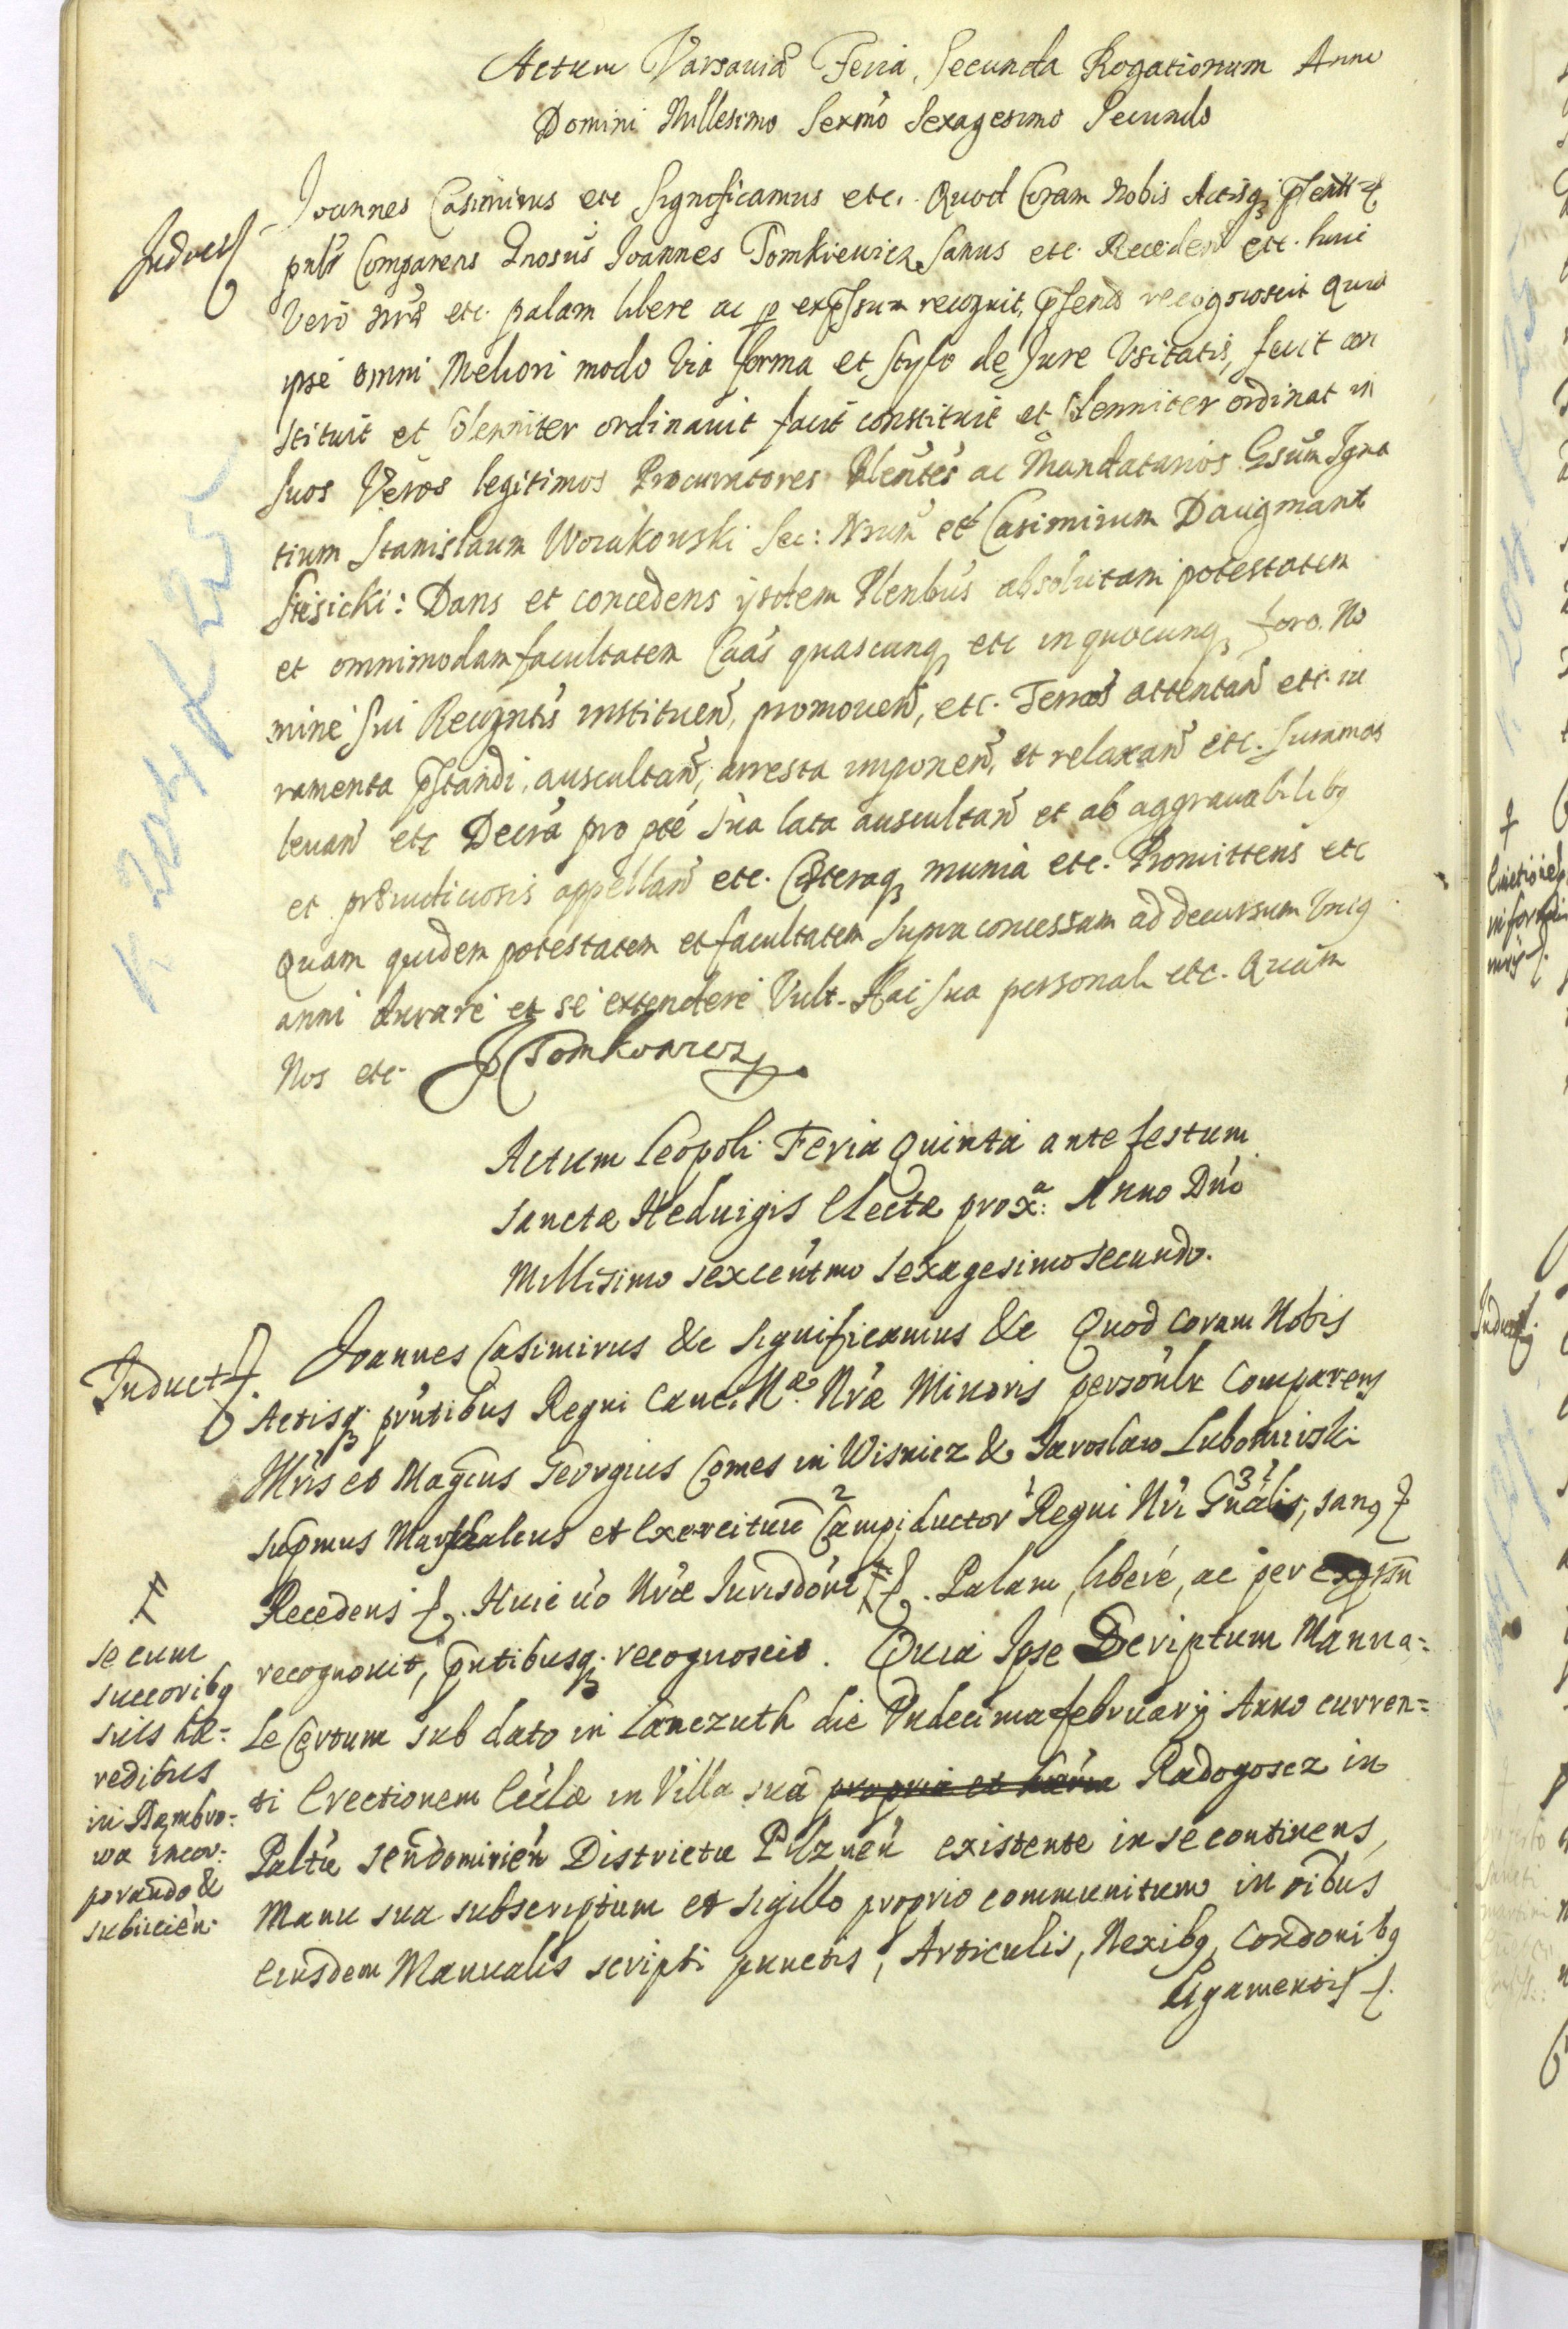 Actum Varsaviæ Feria Secunda Rogationum Anno
Domini Millesimo Sexmo Sexagesimo Secundo
Induct
Joannes Casimirus etc Significamus etc. Quod Coram Nobis Actisq
pnlr Comparens Gnosus Joannes Tomkiewicz Sanus etc. Recedens etc. huic
Vero nræ etc. palam libere ac p expssum recognit, psends recognoscit quia
ipse omni Meliori modo via forma et stylo de Jure Usitatis, fecit con
stituit et solenniter ordinavit facit constituit et solenniter ordinat in
suos Veros legitimos Procuratores Plentes ac Mandatarios Gsum Igna
tium Stanislaum Worakowski Sec: Nrum et Casimirum Daugmant
Siesicki: Dans et concedens ijsdem Plenbus absolutam potestatem
et omnimodam facultatem Caas quascunq etc in quocunq foro No
mine sui Recogntis instituen, promoven, etc. Termos attentan etc. iu
ramenta pstandi, auscultan, arresta imponen, et relaxan etc. Summas
levan etc Decra pro pte sua lata auscultan et ab aggravabilibq
et præiudiciosis appellan etc. Cæteraq munia etc. Promittens etc
Quam quidem potestatem et facultatem supra concessam ad decursum Uniq
anni durare et se extendere Vult. Hac sua personal etc. Quam
Nos etc. J Tomkowicz
Actum Leopoli Feria Quinta ante festum
Sanctæ Hedvigis Electæ proxa: Anno Dno
Millesimo sexcentmo sexagesimo secundo.
Induct
Joannes Casimirus &c Significamus &c Quod coram Nobis
Actisq prntibus Regni Canc. Mæ Nræ Minoris personlr Comparens
Illris et Magcus Georgius Comes in Wisnicz & Jaroslaw Lubomirski
supmus Marschalcus et Exercituu 2 Campiductor 1 Regni Nri Gnalis 3, sanq
Recedens. Huic vo Nræ Jurisdoni ǂ. Palam, libere, ac per expssu
recognovit, pntibusq recognoscit. Quia Ipse Scriptum Manua=
le Certum sub dato in Lanczuth die Undecima february Anno curren=
ti Erectionem Eccl​æ in Villa sua propria et hæria Radogoscz in
Paltu Sendomirien Districtu Pilznen existente in se continens,
Manu sua subscriptum et sigillo proprio communitum in oibus
eiusdem Manualis scripti punctis, Articulis, Nexibq, Condonibq
Ligamentis
ǂ
se cum
succoribq
suis hæ=
redibus
in Dæmbro=
wa incor=
porando &
subiicien.